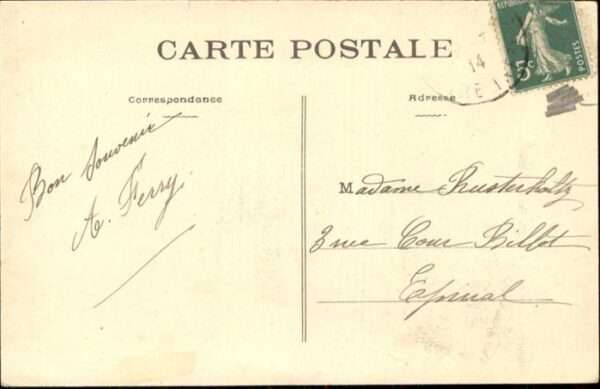 CARTE POSTALE
Correspondance
Adresse
5c
POSTES
14
Bon Souvenir
A. Ferry.
Madame Rusterholtz
3 rue Cour Billot
Epinal